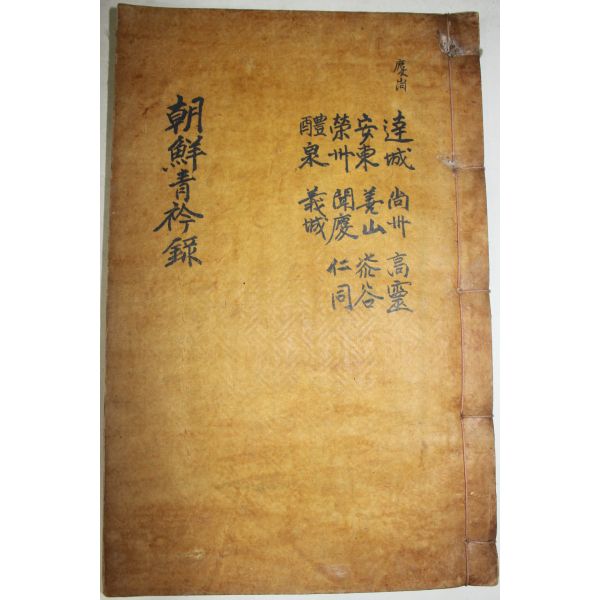 慶尙
達城 尙州 高靈
安東 善山 漆谷
榮州 聞慶 仁同
醴泉 義城
朝鮮青衿錄